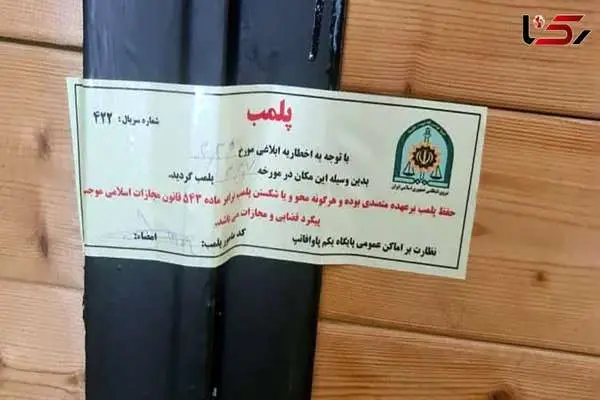 رکنا
پلمب
شماره سریال: ۴۲۲
با توجه به اخطاریه ابلاغی مورخ
بدین وسیله این مکان در مورخه پلمب گردید.
حفظ پلمب برعهده متصدی بوده و هرگونه محو و یا شکستن پلمب برابر ماده ۵۴۳ قانون مجازات اسلامی موجب
پیگرد قضایی و مجازات می باشد.
نظارت بر اماکن عمومی پایگاه یکم پاوافاتب کد مامور پلمب: امضاء:
نیروی انتظامی جمهوری اسلامی ایران